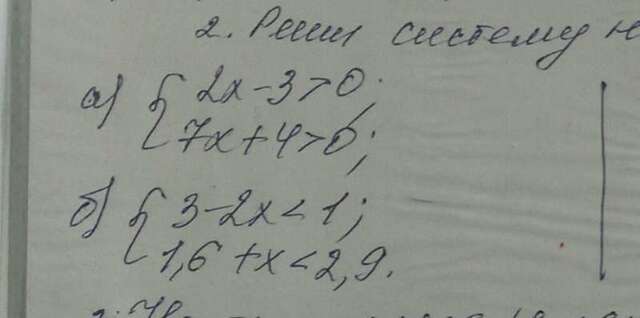 2. Реши систему н
а) { 2x-3>0;
7x+4>0;
б) { 3-2x<1;
1,6+x<2,9.